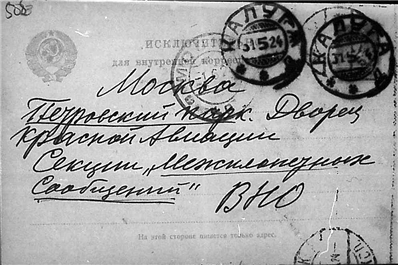 502
ИСКЛЮЧИТЕ
для внутренней
КАЛУГА
31.5.24
КАЛУГА
31.5.24
Москва
Петровский парк. Дворец
Красной Авиации
Секции „Межпланетных
Сообщений“ ВНО
На этой стороне пишется только адрес.